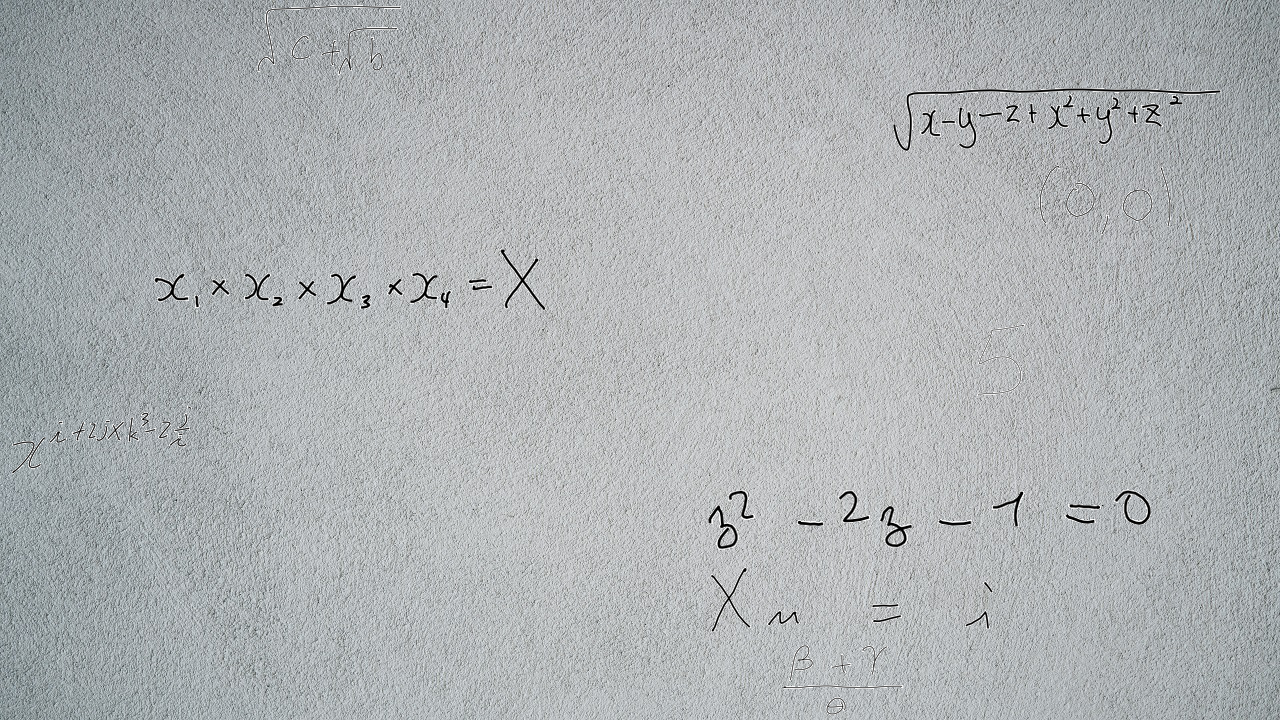 √(c+√b)
√(x-y-z+x²+y²+z²)
(0,0)
x₁ × x₂ × x₃ × x₄ = X
5
x^(i+2j×k³-2j/i)
z² - 2z - 1 = 0
Xₙ = i
(β+γ)/θ